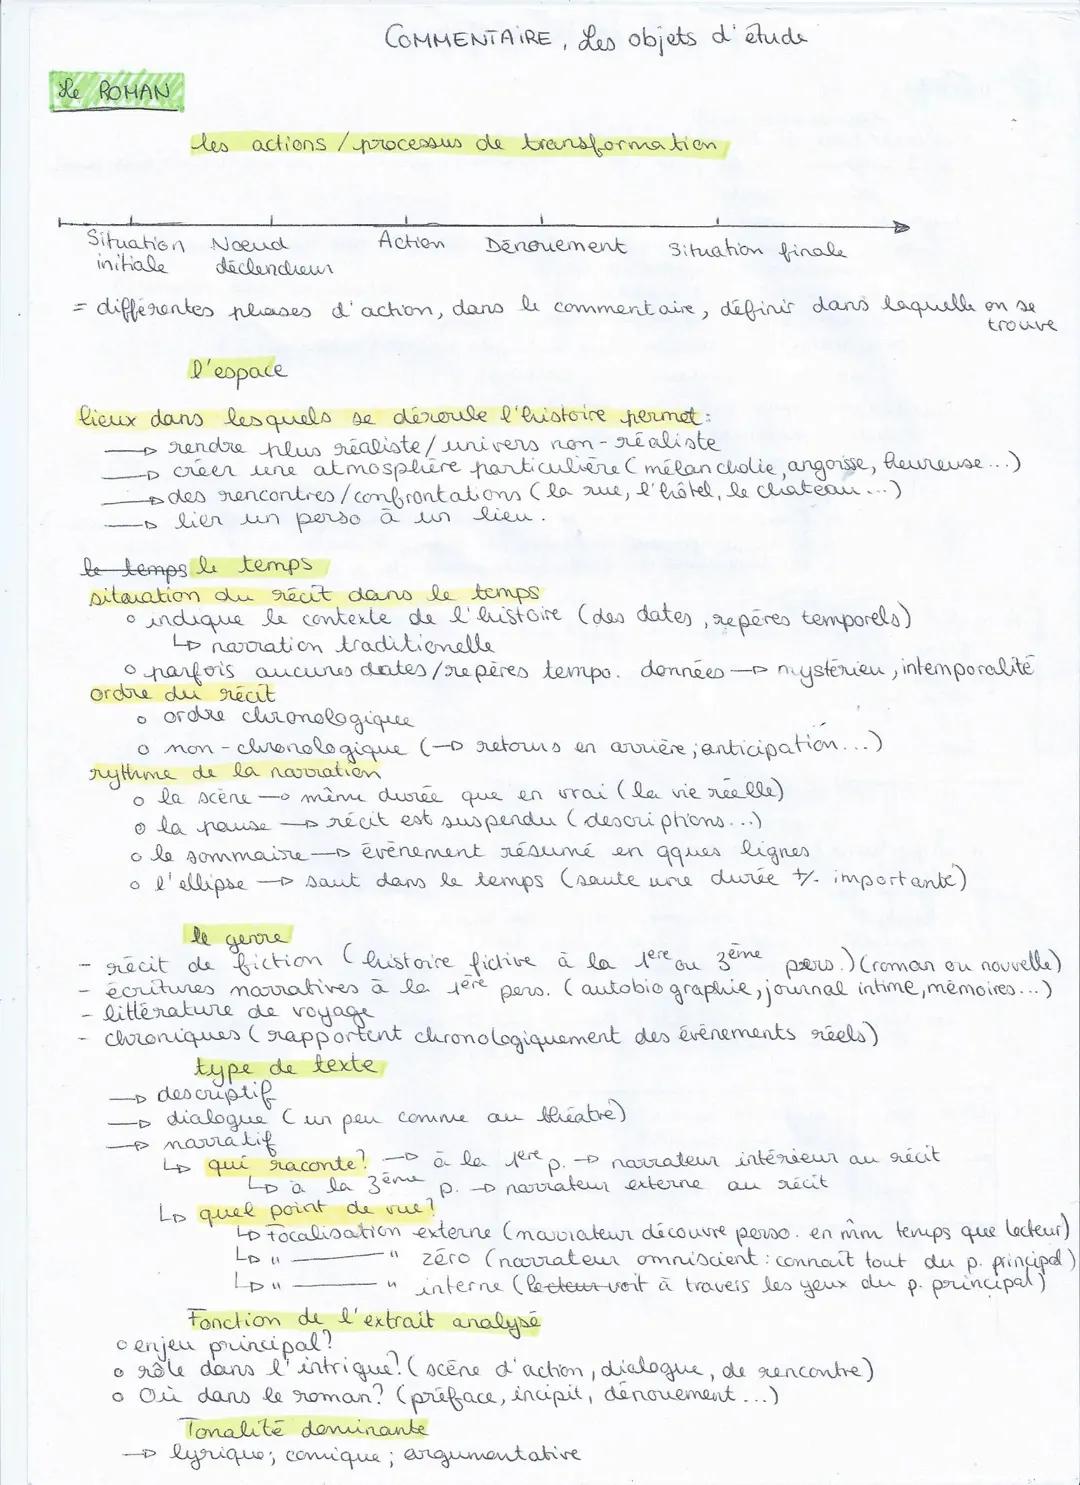 COMMENTAIRE, Les objets d'étude
Le ROMAN
les actions / processus de transformation
Situation initiale
Noeud déclencheur
Action
Dénouement
Situation finale
= différentes phases d'action, dans le commentaire, définir dans laquelle on se
trouve
l'espace
lieux dans lesquels se déroule l'histoire permet :
→ rendre plus réaliste / univers non-réaliste
→ créer une atmosphère particulière (mélancholie, angoisse, heureuse...)
→ des rencontres / confrontations (la rue, l'hôtel, le chateau...)
→ lier un perso à un lieu.
le temps le temps
situation du récit dans le temps
o indique le contexte de l'histoire (des dates, repères temporels)
↳ narration traditionelle
o parfois aucunes dates/repères tempo. données → mystérieu, intemporalité
ordre du récit
o ordre chronologique
o non-chronologique (→ retours en arrière ; anticipation...)
rythme de la narration
o la scène → même durée que en vrai (la vie réelle)
o la pause → récit est suspendu (descriptions...)
o le sommaire → évènement résumé en qques lignes
o l'ellipse → saut dans le temps (saute une durée +/- importante)
le genre
- récit de fiction (histoire fictive à la 1ère ou 3ème pers.) (roman ou nouvelle)
- écritures narratives à la 1ère pers. (autobiographie, journal intime, mémoires...)
- littérature de voyage
- chroniques (rapportent chronologiquement des évènements réels)
type de texte
→ descriptif
→ dialogue (un peu comme au théâtre)
→ narratif
↳ qui raconte? → à la 1ère p. → narrateur intérieur au récit
↳ à la 3ème p. → narrateur externe au récit
↳ quel point de vue?
↳ Focalisation externe (narrateur découvre perso. en mm temps que lecteur)
↳ " — " zéro (narrateur omniscient : connaît tout du p. principal)
↳ " — " interne (lecteur voit à travers les yeux du p. principal)
Fonction de l'extrait analysé
o enjeu principal?
o rôle dans l'intrigue? (scène d'action, dialogue, de rencontre)
o Où dans le roman? (préface, incipit, dénouement...)
Tonalité dominante
→ lyrique ; comique ; argumentative